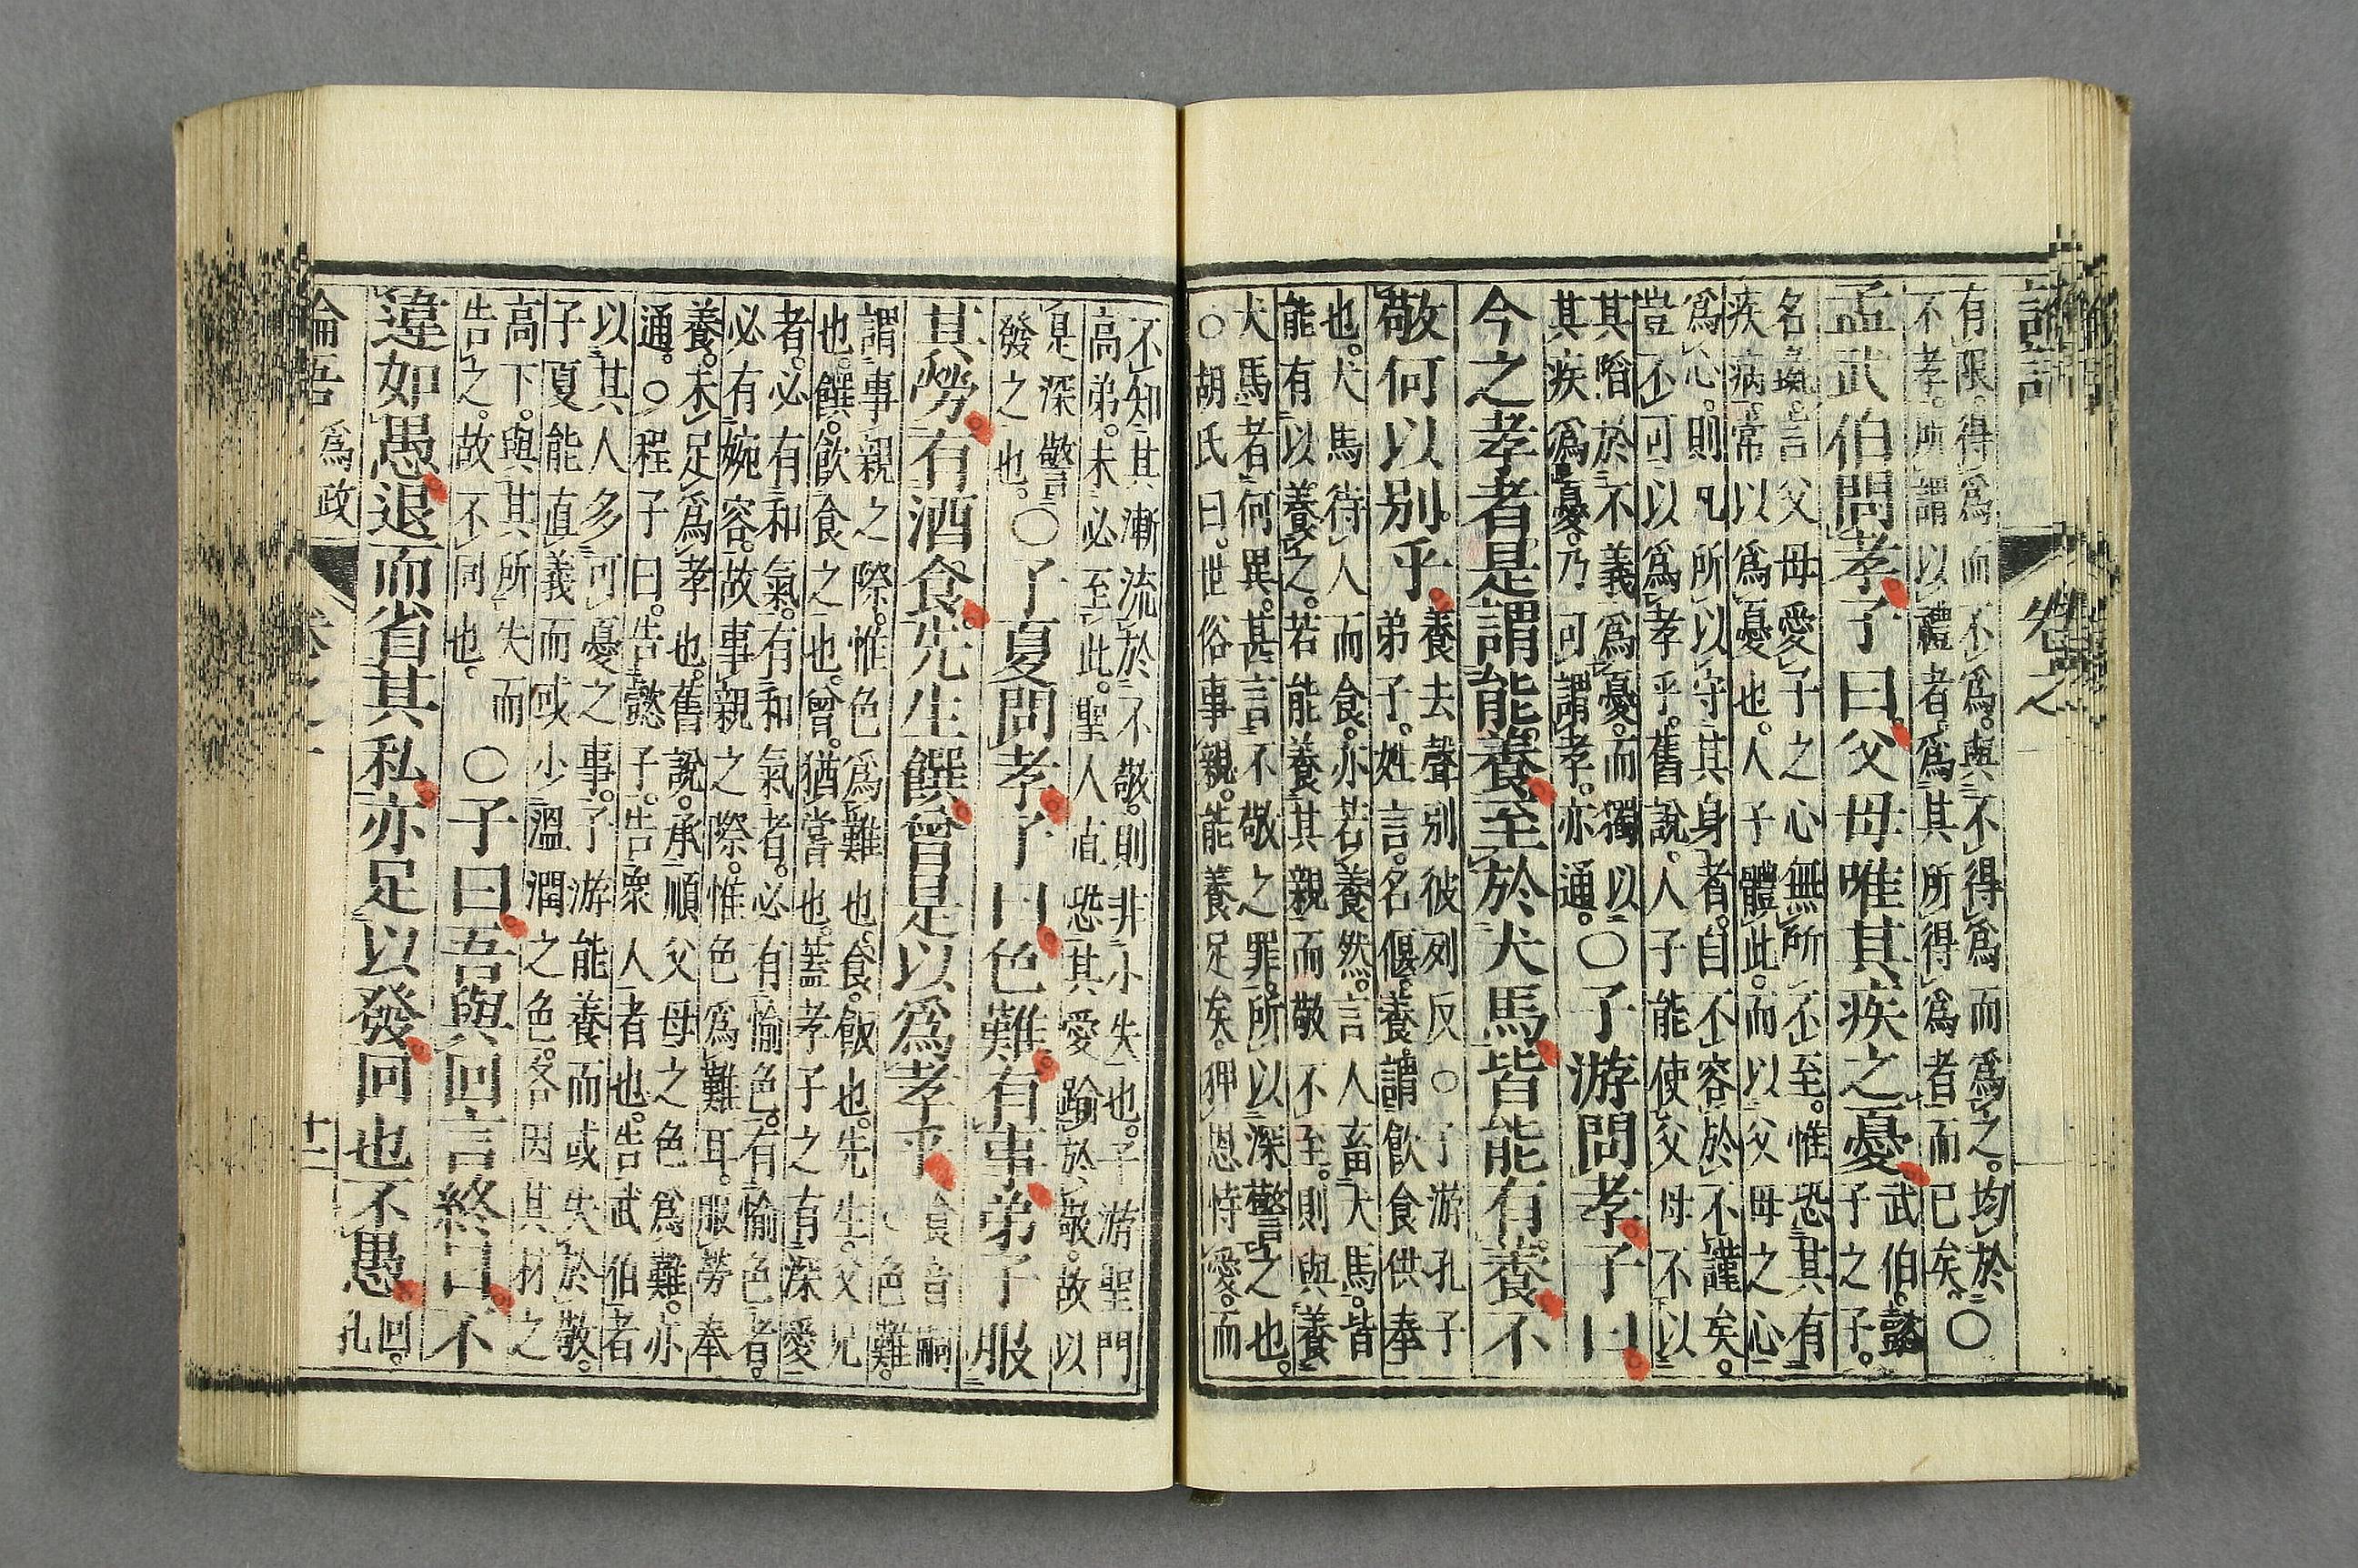 論語 卷之一
有限。得爲而不爲。與不得爲而爲之。均於
不孝。所謂以禮者。爲其所得爲者而已矣。○
孟武伯問孝子曰。父母唯其疾之憂 武伯。懿
子之子。
名彘。言父母愛子之心無所不至。惟恐其有
疾病。常以爲憂也。人子體此。而以父母之心
爲心。則凡所以守其身者。自不容於不謹矣。
豈不可以爲孝乎。舊說。人子能使父母不以
其陷於不義爲憂。而獨以
其疾爲憂。乃可謂孝。亦通。
○子游問孝子曰
今之孝者是謂能養。至於犬馬皆能有養。不
敬何以别乎。 養去聲别彼列反○子游孔子
弟子。姓言。名偃。養。謂飮食供奉
也。犬馬待人而食。亦若養然。言人畜犬馬。皆
能有以養之。若能養其親而敬不至。則與養
犬馬者何異。甚言不敬之罪。所以深警之也。
○胡氏曰。世俗事親。能養足矣。狎恩恃愛。而
不知其漸流於不敬。則非小失也。子游聖門
高弟。未必至此。聖人直恐其愛踰於敬。故以
是深警
發之也。
○子夏問孝子曰色難有事弟子服
其勞有酒食。先生饌曾是以爲孝乎 食音嗣
○色難。
謂事親之際。惟色爲難也。食。飯也。先生。父兄
也。饌。飮食之也。曾。猶嘗也。蓋孝子之有深愛
者。必有和氣。有和氣者。必有愉色。有愉色者。
必有婉容。故事親之際。惟色爲難耳。服勞奉
養。未足爲孝也。舊說。承順父母之色爲難。亦
通。○程子曰。告懿子。告衆人者也。告武伯者
以其人多可憂之事。子游能養而或失於敬。
子夏能直義而或少溫潤之色。各因其材之
高下。與其所失而
告之。故不同也。
○子曰吾與回言終日不
違如愚退而省其私亦足以發回也不愚 回。
孔
論語 爲政 卷之一 十二